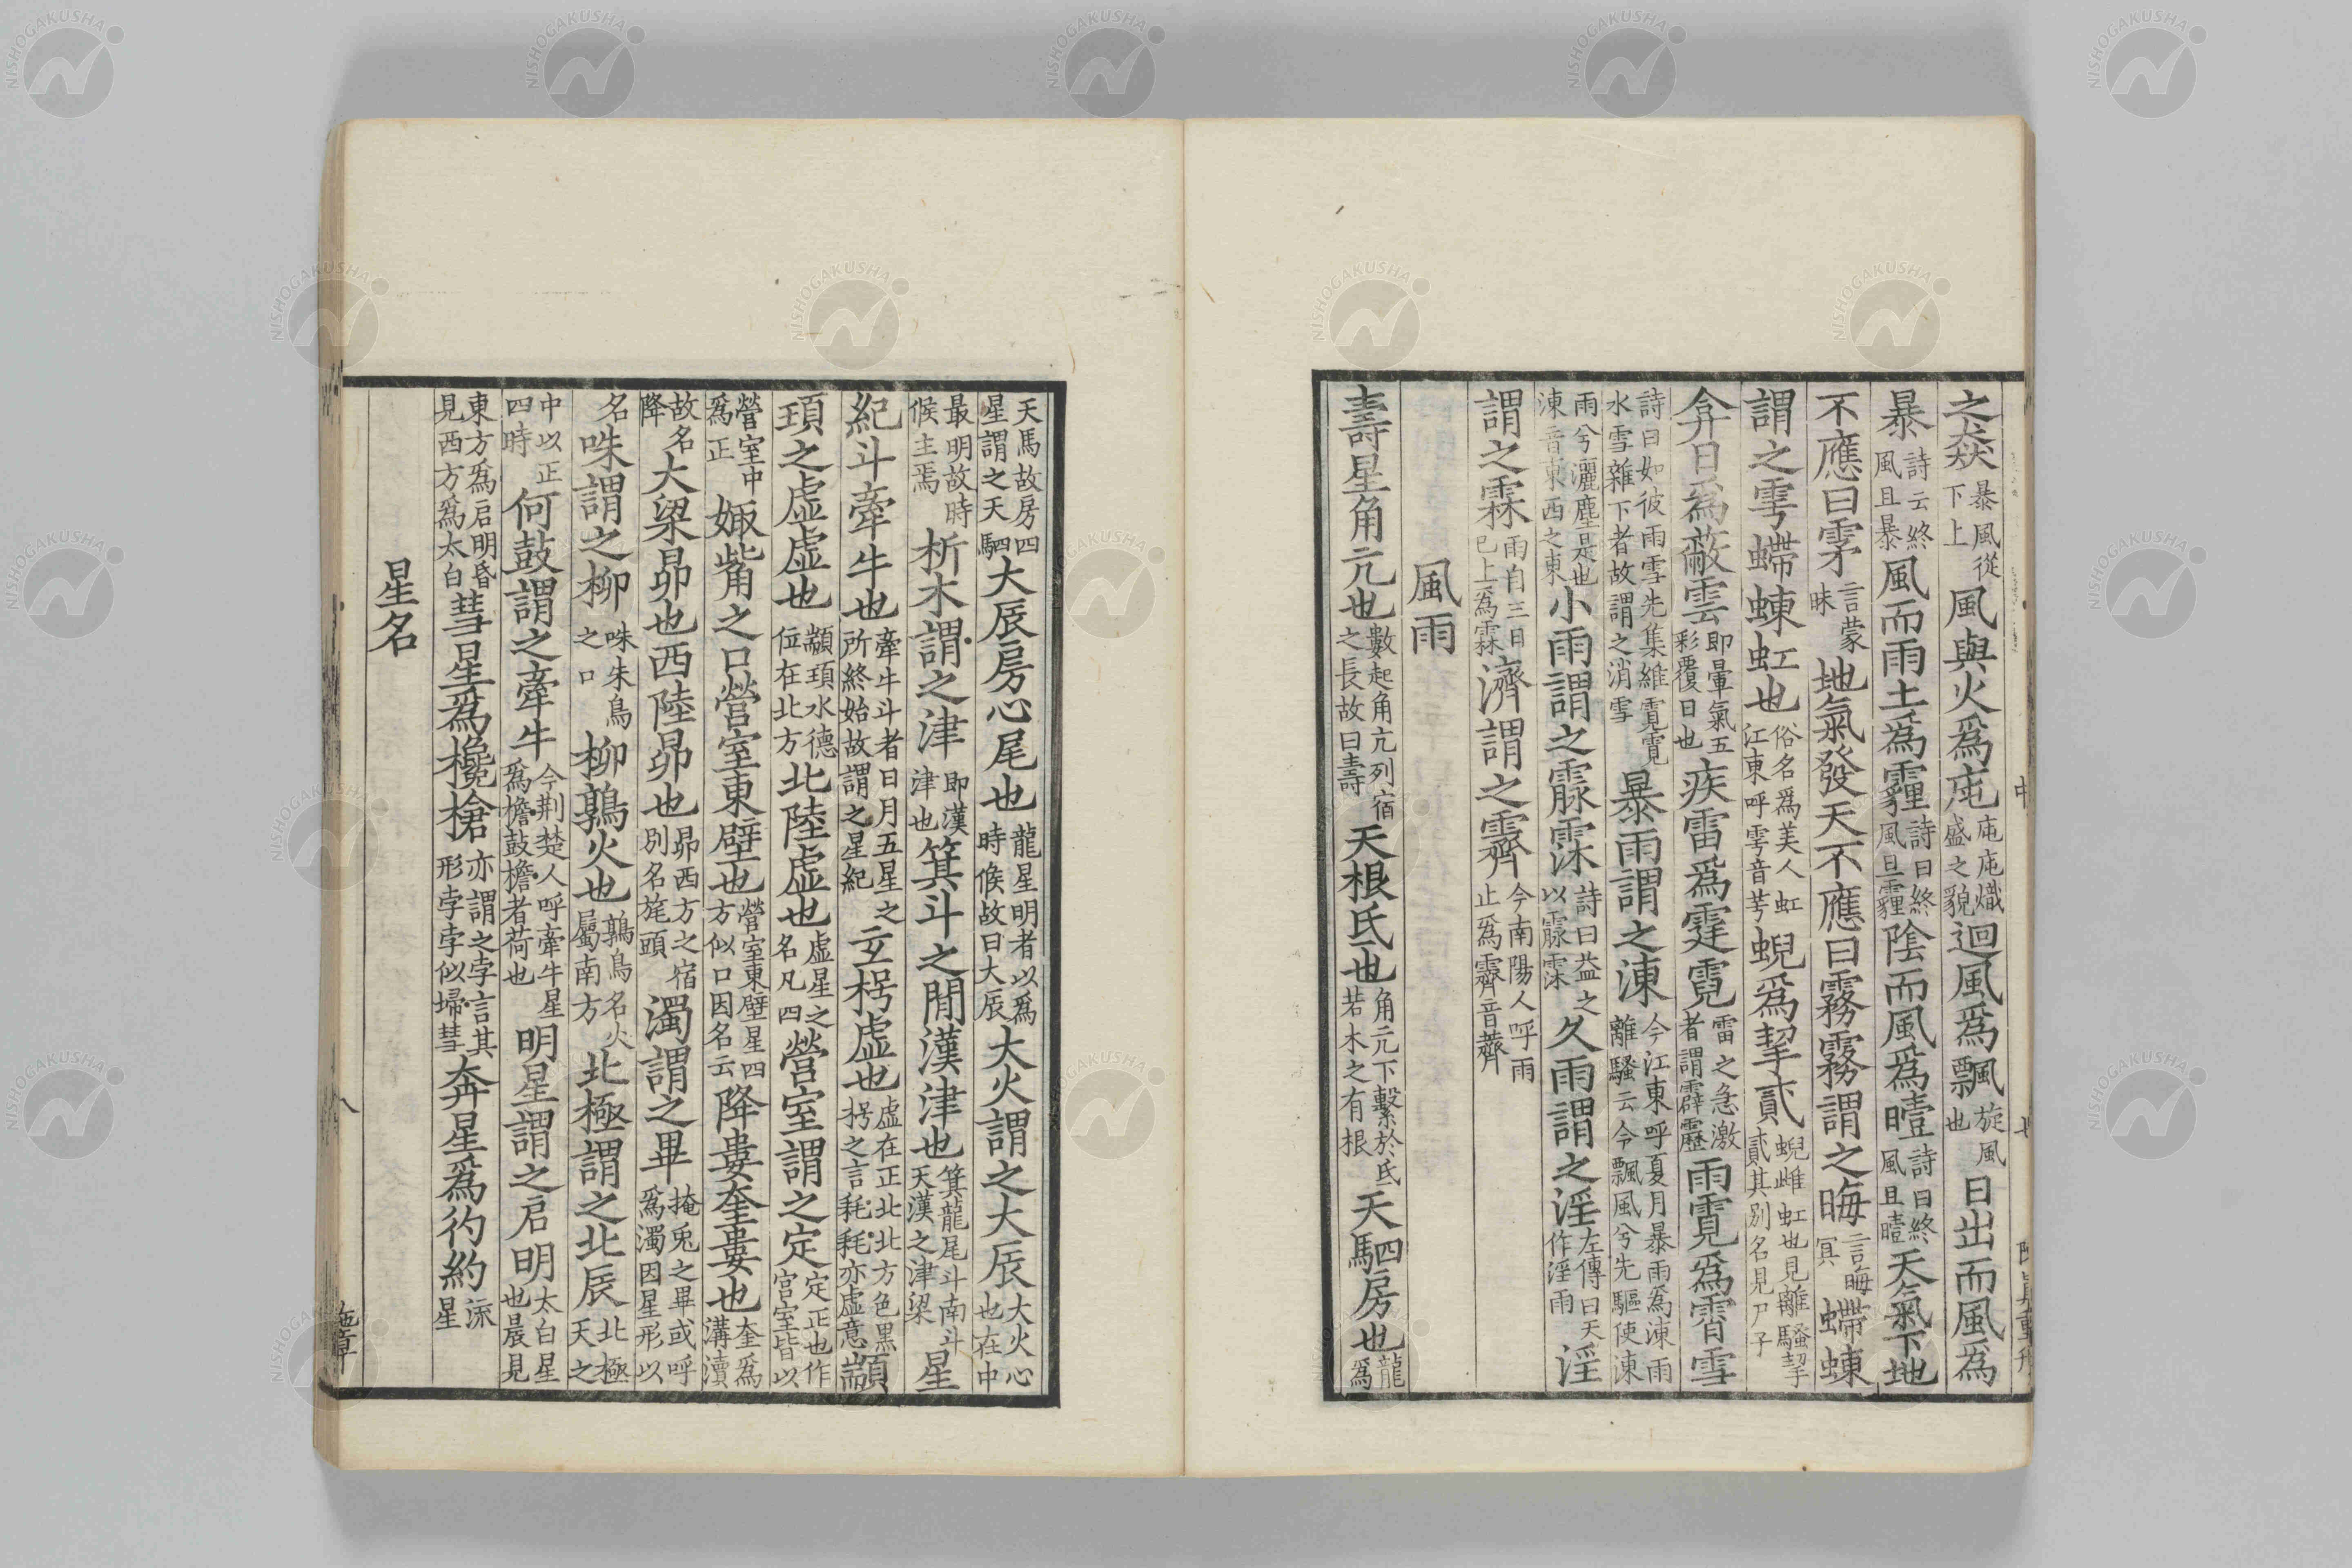 之猋暴風從下上風與火爲庉庉庉熾盛之貌迴風爲飄旋風也日出而風爲
暴詩云終風且暴風而雨土爲霾詩曰終風且霾陰而風爲曀詩曰終風且曀天氣下地
不應曰雺言蒙昧地氣發天不應曰霧霧謂之晦言晦冥螮蝀
謂之雩螮蝀虹也俗名爲美人虹江東呼雩音芌蜺爲挈貳蜺雌虹也見離騷挈貳其別名見尸子
弇日爲蔽雲即暈氣五彩覆日也疾雷爲霆霓雷之急激者謂霹靂雨霓爲霄雪
詩曰如彼雨雪先集維霓霓水雪雜下者故謂之消雪暴雨謂之涷今江東呼夏月暴雨爲涷雨離騷云令飄風兮先驅使涷
雨兮灑塵是也涷音東西之東小雨謂之霡霂詩曰益之以霡霂久雨謂之淫左傳曰天作淫雨淫
謂之霖雨自三日已上爲霖濟謂之霽今南陽人呼雨止爲霽音薺
風雨
壽星角亢也數起角亢列宿之長故曰壽天根氐也角亢下繫於氐若木之有根天駟房也龍爲
天馬故房四星謂之天駟大辰房心尾也龍星明者以爲時候故曰大辰大火謂之大辰大火心也在中
最明故時候主焉析木謂之津即漢津也箕斗之閒漢津也箕龍尾斗南斗天漢之津梁星
紀斗牽牛也牽牛斗者日月五星之所終始故謂之星紀玄枵虛也虛在正北北方色黑枵之言耗耗亦虛意顓
頊之虛虛也顓頊水德位在北方北陸虛也虛星之名凡四營室謂之定定正也作宮室皆以
營室中爲正娵觜之口營室東壁也營室東壁星四方似口因名云降婁奎婁也奎爲溝瀆
故名降大梁昴也西陸昴也昴西方之宿別名旄頭濁謂之畢掩兎之畢或呼爲濁因星形以
名咮謂之柳咮朱鳥之口柳鶉火也鶉鳥名火屬南方北極謂之北辰北極天之
中以正四時何鼓謂之牽牛今荊楚人呼牽牛星爲檐鼓檐者荷也明星謂之启明太白星也晨見
東方爲启明昏見西方爲太白彗星爲欃槍亦謂之孛言其形孛孛似埽彗奔星爲彴約流星
星名
施章